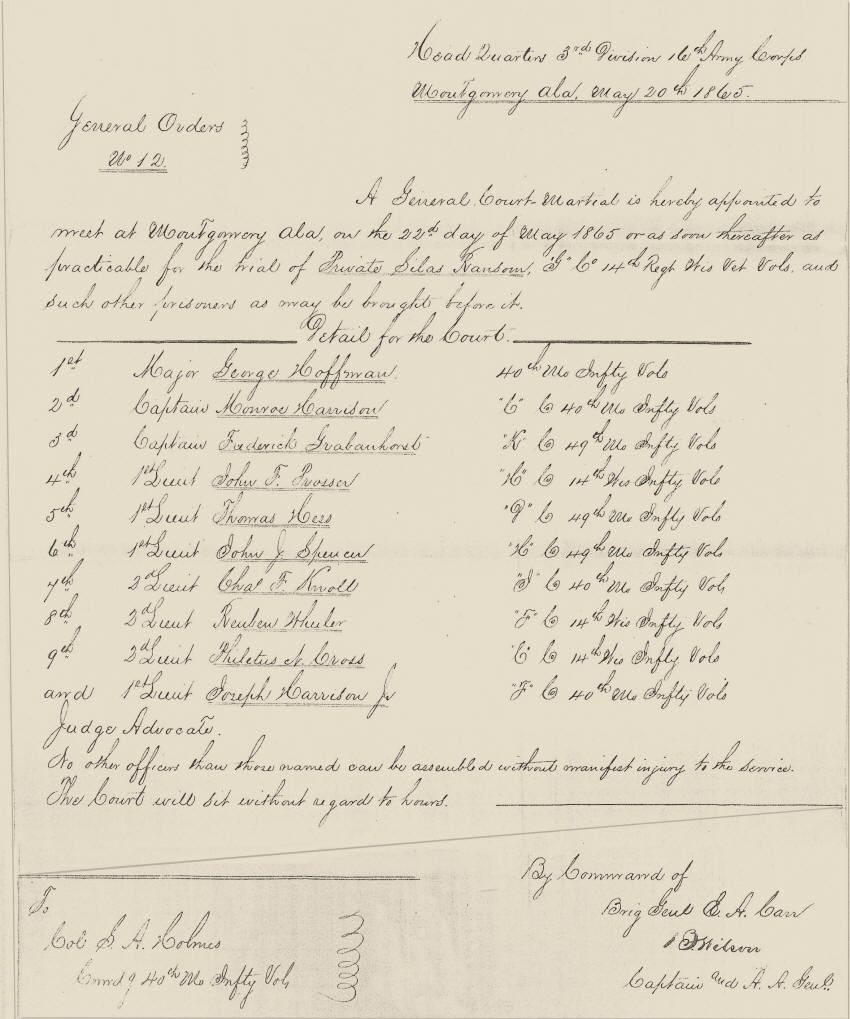 Head Quarters 3rd Division 16th Army Corps
Montgomery Ala, May 20th 1865.
General Orders
No 12.
A General Court-Martial is hereby appointed to
meet at Montgomery Ala, on the 22d day of May 1865 or as soon thereafter as
practicable for the trial of Private Silas Ransom, "G" Co 14th Regt Wis Vet Vols. and
such other prisoners as may be brought before it.
Detail for the Court.
1st Major George Hoffman. 40th Mo Infty Vols
2d Captain Monroe Harrison "C" Co 40th Mo Infty Vols
3d Captain Frederick Grabenhorst "K" Co 49th Mo Infty Vols
4th 1st Lieut John F. Prosser "H" Co 14th Wis Infty Vols
5th 1st Lieut Thomas Hess Co 49th Mo Infty Vols
6th 1st Lieut John J Spencer "H" Co 49th Mo Infty Vols
7th 2d Lieut Chas F. Knoll "I" Co 40th Mo Infty Vols
8th 2d Lieut Reuben Wheeler "F" Co 14th Wis Infty Vols
9th 2d Lieut Philetus N. Cross "C" Co 14th Wis Infty Vols
and 1st Lieut Joseph Harrison Jr "F" Co 40th Mo Infty Vols
Judge Advocate.
No other officers than those named can be assembled without manifest injury to the service.
The Court will sit without regard to hours.
By Command of
Brig Genl E. A. Carr
Wilson
Captain and A. A. Genl.
To
Col S. A. Holmes
Comdg 40th Mo Infty Vols